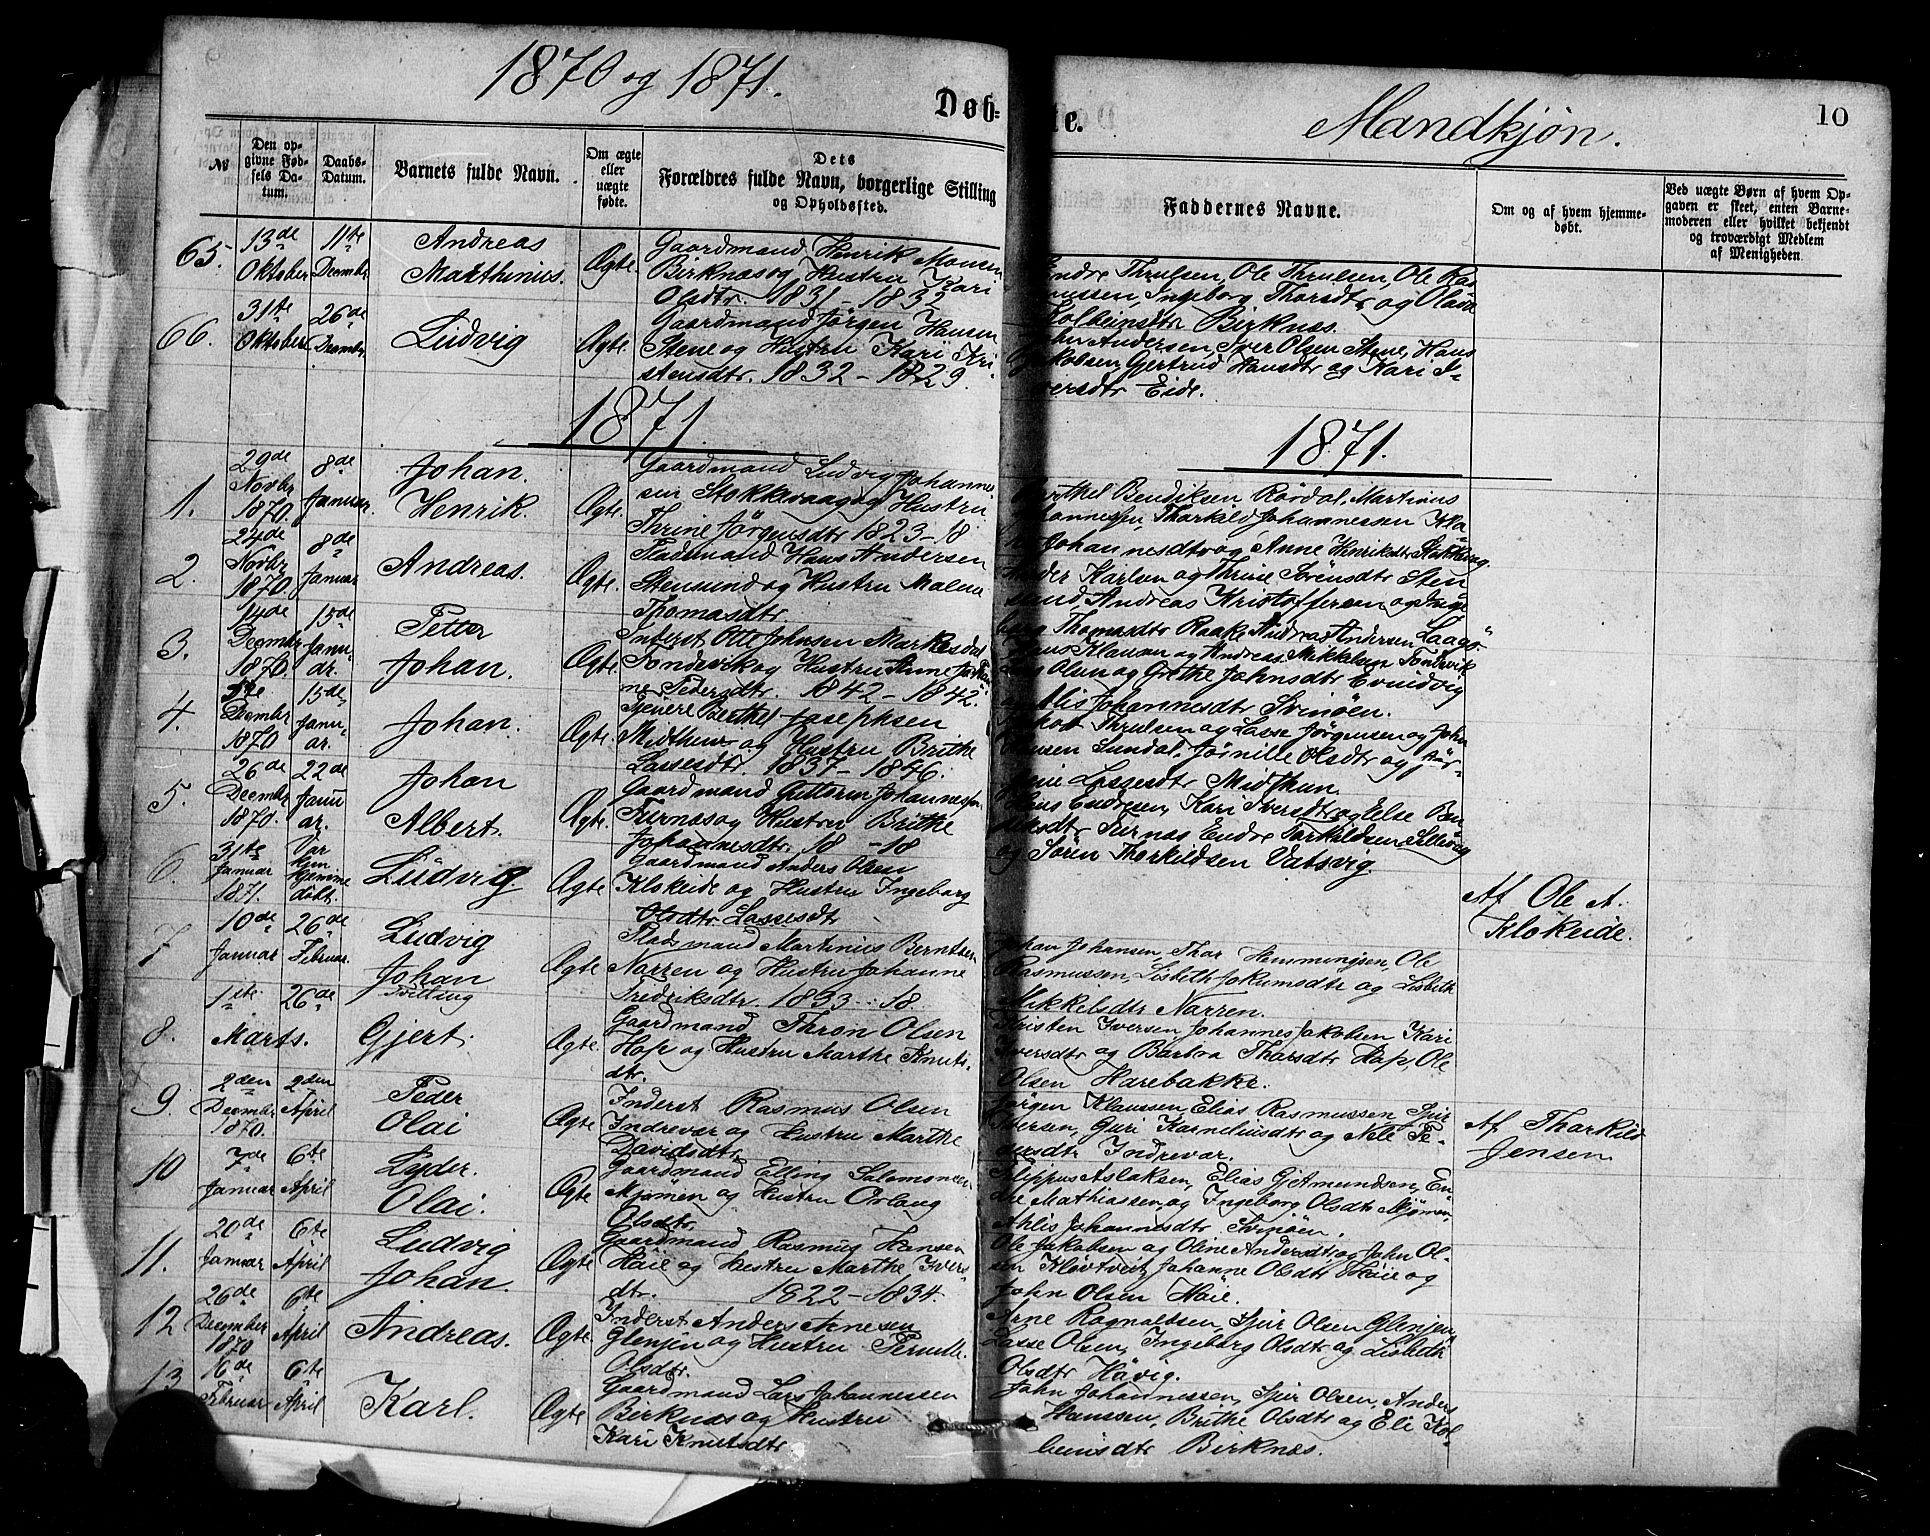 1870 og 1871.
Døb-
te.
Mandkjøn.
10
№
Den op-
givne Fød-
sels Da-
tum.
Daabs-
Datum.
Barnets fulde Navn.
Om ægte
eller
uægte
fødte.
Dets
Forældres fulde Navn, borgerlige Stilling
og Opholdssted.
Faddernes Navne.
Om og af hvem hjemme-
døbt.
Ved uægte Børn af hvem Op-
gaven er skeet, enten Barne-
moderen eller hvilket bekjendt
og troværdigt Medlem
af Menigheden.
65.
13de
Oktober
11te
Decmbr.
Andreas
Matthinius.
Ægte.
Gaardmand Henrik Monsen
Birknæs og Hustru Kari
Olsdtr. 1831 - 1832
Endre Thrulsen, Ole Thrulsen, Ole Ras-
mussen, Ingeborg Thorsdtr og Olava
Kolbeinsdtr Birknæs.
66.
31te
Oktober
26de
Decmbr.
Ludvig
Ægte.
Gaardmand Jørgen Hansen
Stene og Hustru Kari Kri-
stensdtr. 1832 - 1829.
John Andersen, Iver Olsen Stene, Hans
Jakobsen, Gjertrud Hansdtr og Kari I-
versdtr Eide.
1871.
1871.
1.
29de
Novbr
1870.
8de
Januar.
Johan
Henrik.
Ægte.
Gaardmand Ludvig Johannes-
sen Stokkevaag og Hustru
Thrine Jørgensdtr 1823 - 18
Berthel Bendiksen Rørdal, Martinus
Johannessen, Thorkild Johannessen
Johannesdtr og Anne Henriksdtr Stokkevag.
2.
24de
Novbr
1870.
8de
Januar
Andreas.
Ægte.
Pladsmand Hans Andersen
Stensund og Hustru Malene
Thomasdtr.
Peder Karlsen og Thrine Sørensdtr Sten
sund, Andreas Kristoffersen og Inge
borg Thomasdtr Raake, Andreas Andersen Laagø
3.
14de
Decmbr
1870.
15de
Janu-
ar.
Petter
Johan.
Ægte
Inderst Otto Johnsen Markesdal
Tondevik og Hustru Anne Joha
ne Pedersdtr. 1842 - 1842.
Klausen og Andreas Mikkelsen Tondevik
Olsen og Grethe Johnsdtr Evindvig
og Alis Johannesdtr Svinøen.
4.
Decmbr
1870
15de
Janu-
ar.
Johan.
Ægte.
Tjenere Berthel Josephsen
Midthun og Hustru Brithe
Lassesdtr. 1837 - 1846.
Jakob Thrulsen og Lasse Jørgensen og John
Olsen Sundal, Jørnille Olsdtr og Jør-
gine Lassesdtr Midthun.
5.
26de
Decmbr
1870.
22de
Janu-
ar.
Johan
Albert.
Ægte.
Gaardmand Guttorm Johannessen
Furnæs og Hustru Brithe
Johannesdtr. 18 - 18
Hans Endresen, Kari Iversdtr og Else Ben-
diksdtr Furnæs, Endre Torkildsen Sellevag
og Søren Thorkildsen Vatsvig.
6.
31te
Januar
1871.
Var
hjemme
døbt.
Ludvig.
Ægte
Gaardmand Anders Olsen
Klokeide og Hustru Ingeborg
Olsdtr Lassesdtr
Af Ole A.
Klokeide.
7
10de
Januar
26de
Februar.
Ludvig
Johan
Tvilling
Ægte
Pladsmand Martinus Berntsen
Narren og Hustru Johanne
Fredriksdtr. 1833 - 18.
Johan Johansen, Thor Hemmingsen, Ole
Rasmussen, Lisbeth Jokumsdtr og Lisbeth
Mikkelsdtr Narren.
8.
1ste
Marts.
26de
Gjert.
Ægte.
Gaardmand Thron Olsen
Hop og Hustru Marthe Knuts-
dtr.
Kristen Iversen, Johannes Jakobsen, Kari
Iversdtr og Barbra Thorsdtr Hop, Ole
Olsen Harebakke.
9.
2den
Decmbr
1870.
2den
April
Peder
Olai
Ægte
Inderst Rasmus Olsen
Indrevær og Hustru Marthe
Davidsdtr
Jørgen Klaussen, Elias Rasmussen, Sjur
Petersen, Guri Karneliusdtr og Nele Pe-
dersdtr Indrevær.
Af Thorkild
Jensen
10
7de
Januar
6te
April
Lyder.
Olai.
Ægte
Gaardmand Elling Salomonsen
Mjømen og Hustru Orlaug
Olsdtr.
Filippus Aslaksen, Elias G. Amundsen, En-
dre Mathiassen og Ingeborg Olsdtr Mjømen,
Ahlis Johannesdtr Svinøen.
11.
20de
Januar
6te
April
Ludvig
Johan.
Ægte
Gaardmand Rasmus Hansen
Høie og Hustru Marthe Ivers-
dtr. 1822 - 1834.
Ole Jakobsen og Oline Andersdtr og John Ol-
sen Kløvtveit, Johanne Olsdtr Høie og
John Olsen Høie.
12
26de
December
1870
6te
April
Andreas.
Ægte
Inderst Anders Arnesen
Glenjen og Hustru Pernille
Olsdtr.
Arne Ragnaldsen, Sjur Olsen Glenjen,
Lasse Olsen, Ingeborg Olsdtr og Lisbeth
Olsdtr Høvig.
13
16de
Februar
6te
April
Karl.
Ægte
Gaardmand Lars Johannessen
Birknæs og Hustru
Kari Knutsdtr
John Johannessen, Sjur Olsen, Anders
Hanssen, Brithe Olsdtr og Eli Kol-
beinsdtr Birknæs.